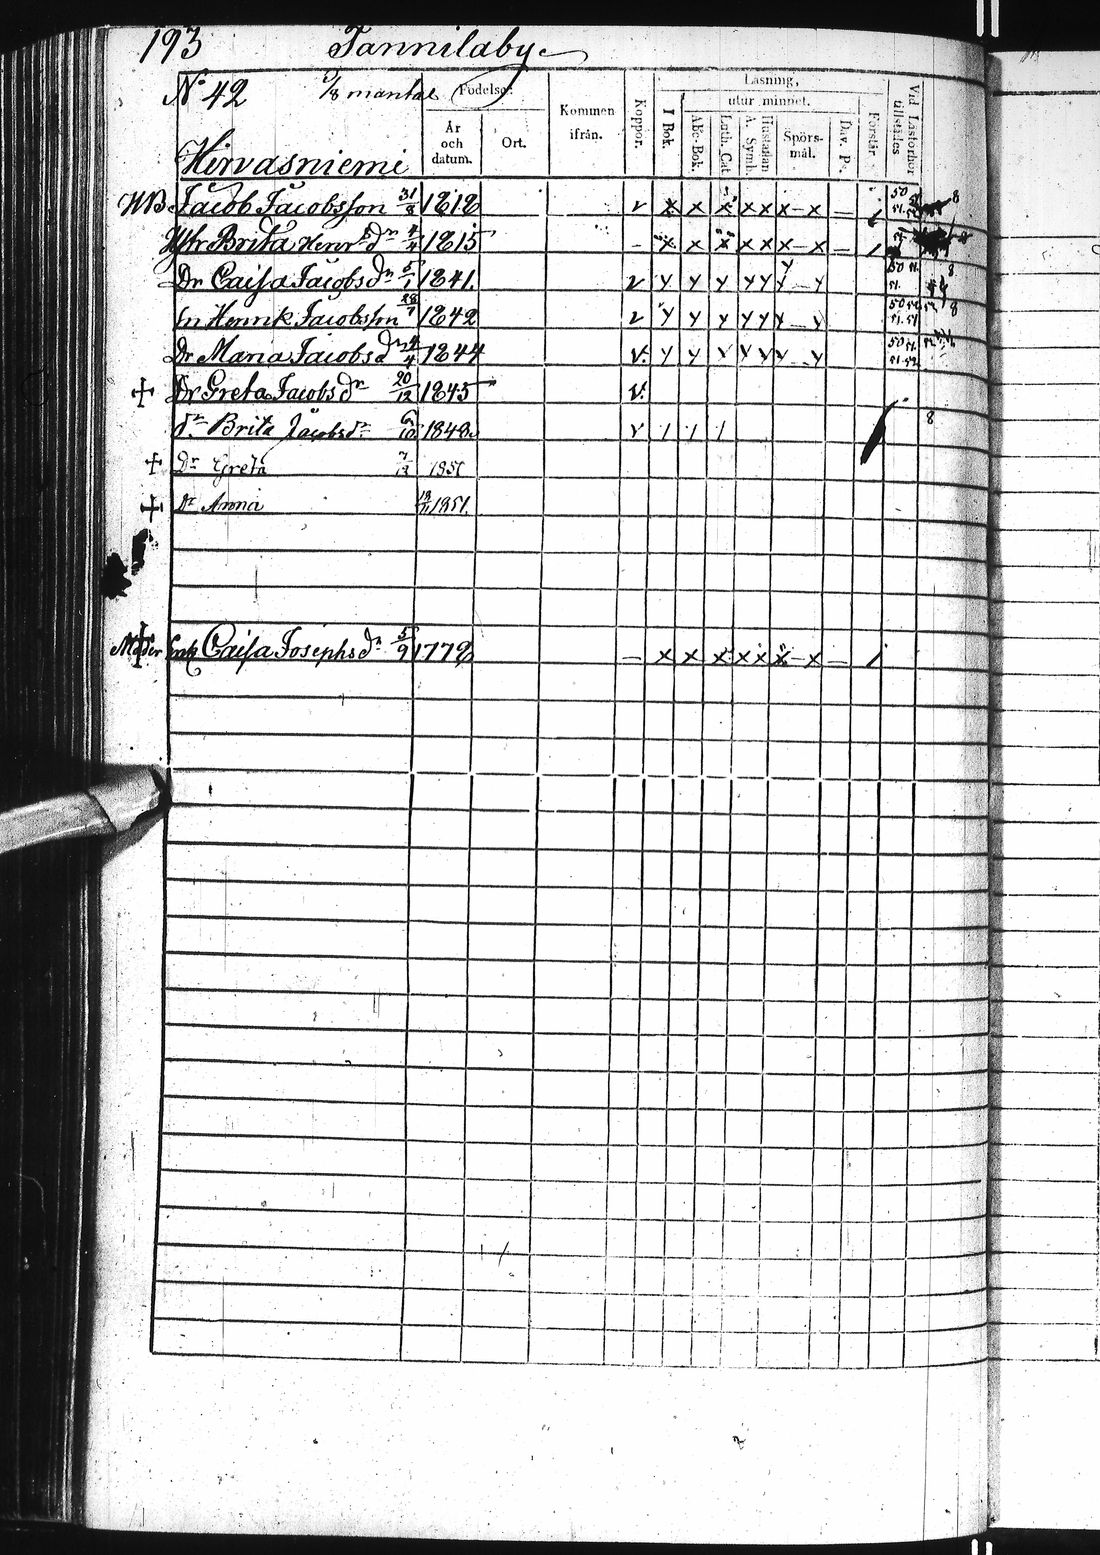 193 Tannilaby
No 42 1/8 mantal Födelse:
Läsning,
utur minnet.
År och datum. Ort. Kommen ifrån. Koppor. I Bok. Abc-Bok. Luth. Cat. Hustaflan A. Symb. Spörsmål. Dav. Ps. Förstår. Vid Läsförhör tillstädes
Hirvasniemi
Jacob Jacobsson 31/8 1812 v x x x x x x - x — 50 8
Brita Henrsdr 4/4 1815 — x x x x x x - x — /
Dr Caisa Jacobsdr 5/1 1841. v y y y y y y - y 50 8
Sn Henrik Jacobsson 28/7 1842 v y y y y y y - y 8
Dr Maria Jacobsdr 24/4 1844 v. y y y y y y - y 50
+ Dr Greta Jacobsdr 20/12 1845 v.
dr Brita Jacobsdr 6/10 1848 v / / / 8
+ Dr Greta 1851
+ Dr Anna 1851.
Moder Enk Caisa Josephsdr 5/9 1778 — x x x x x x - x — /